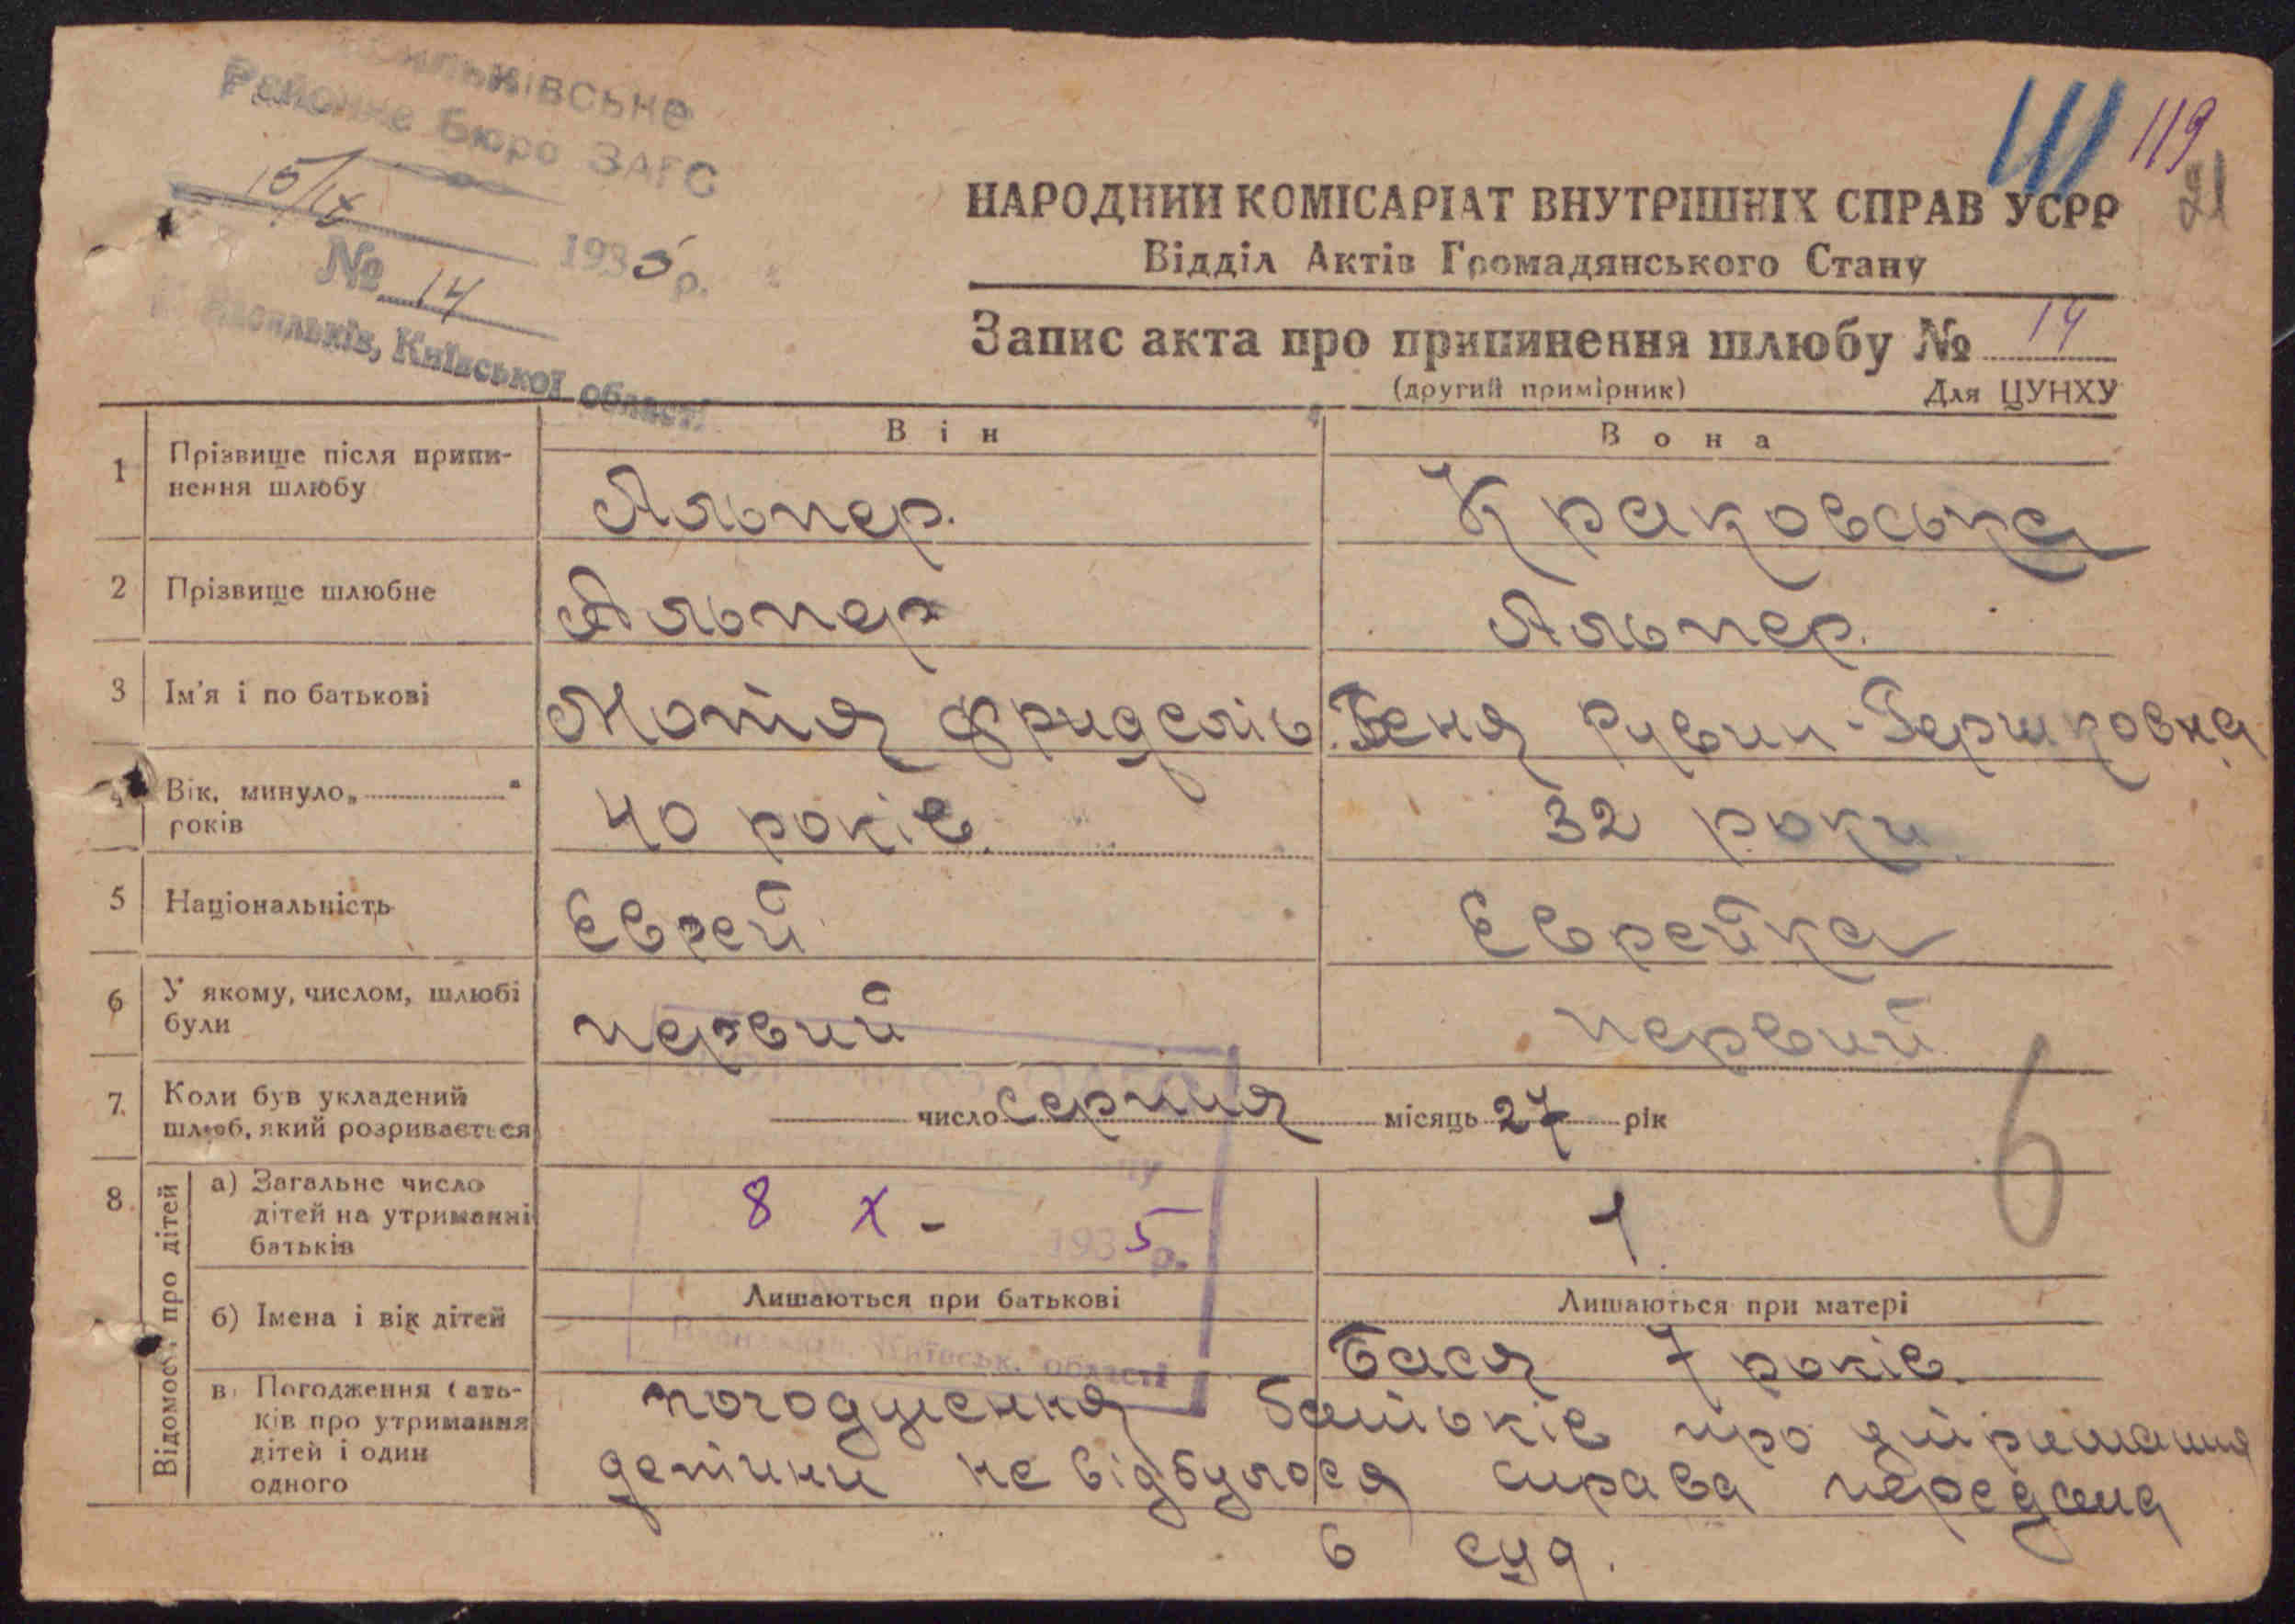 Районне Бюро ЗАГС
15/IX 1935 р.
№ 14
Васильків, Київської області
111 119
21
НАРОДНИЙ КОМІСАРІАТ ВНУТРІШНІХ СПРАВ УСРР
Відділ Актів Громадянського Стану
Запис акта про припинення шлюбу № 14
(другий примірник) Для ЦУНХУ
Він Вона
1 Прізвище після припи-
нення шлюбу
Альпер. Краковська
2 Прізвище шлюбне Альпер Альпер.
3 Ім'я і по батькові Мотя Фриделів Беня Рувин-Гершковна
4 Вік, минуло „ “
років
40 років. 32 роки.
5 Національність Єврей Єврейка
6 У якому, числом, шлюбі
були
первий первий
7. Коли був укладений
шлюб, який розривається
число серпня місяць 27 рік
6
8. Відомості про дітей
а) Загальне число
дітей на утриманні
батьків
8 X - 1935 р. 1
б) Імена і вік дітей
Лишаються при батькові Лишаються при матері
Васильків, Київськ. області
Бася 7 років.
в) Погодження бать-
ків про утримання
дітей і один
одного
погодження батьків про утримання
детини не відбулося справа передана
в суд.